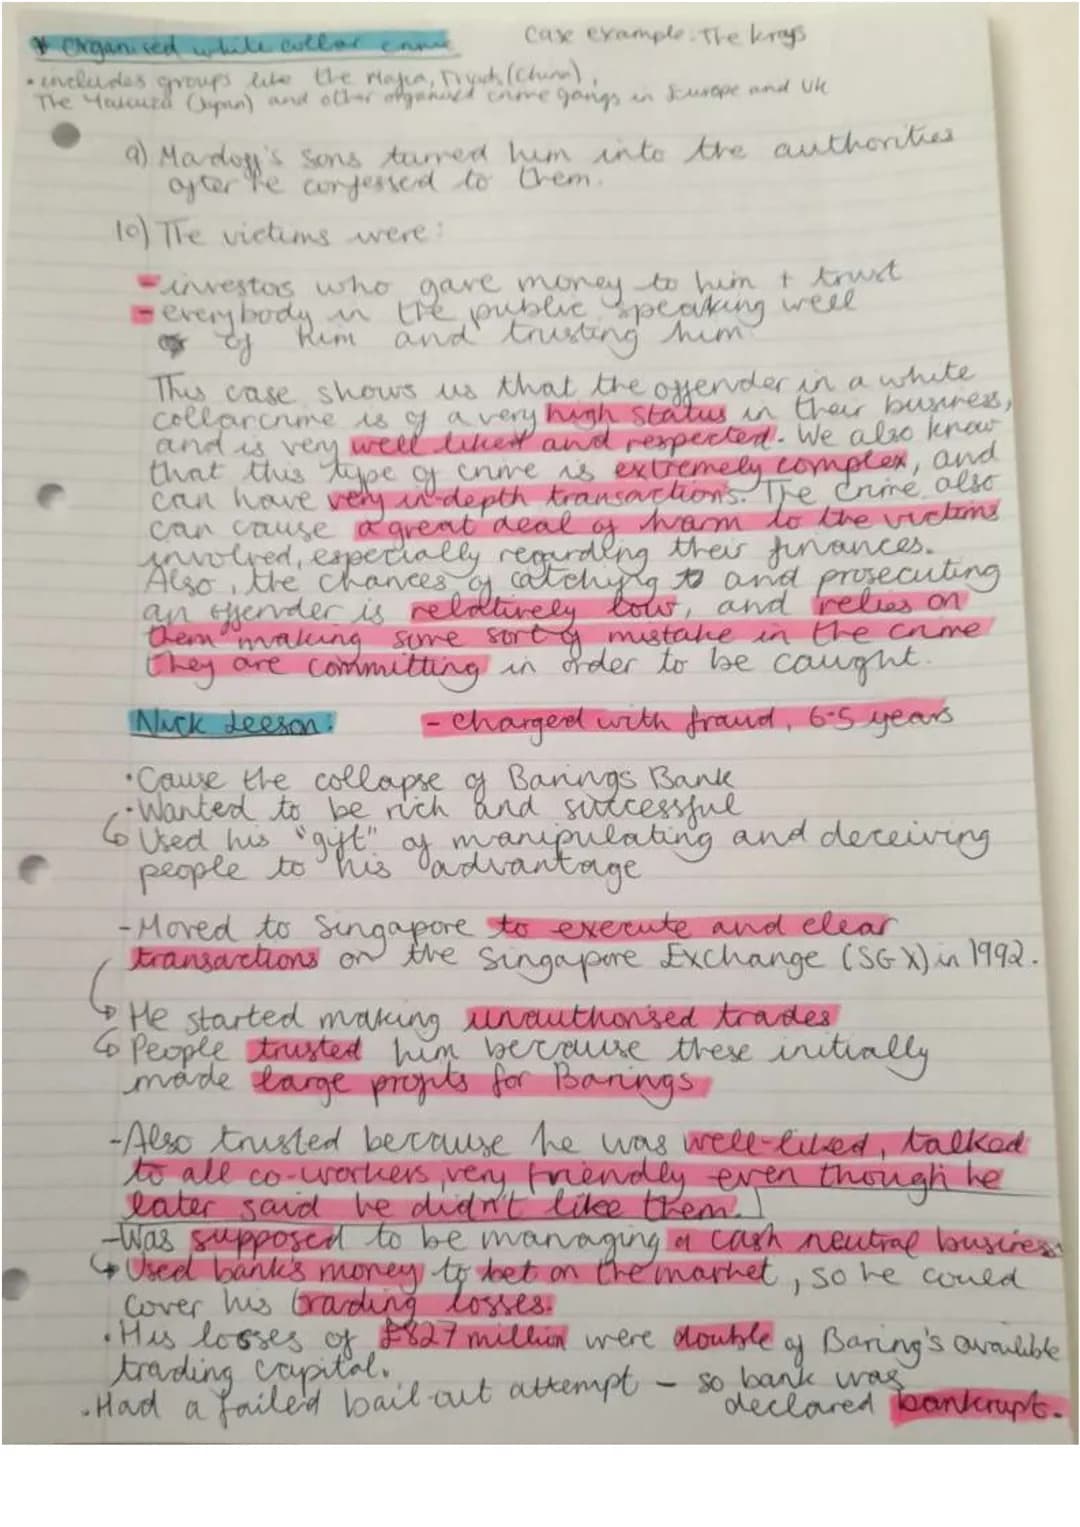 * Organised white collar crime
Case example: The Krays
• includes groups like the Mafia, Triads (China),
The Yakuza (Japan) and other organised crime gangs in Europe and UK
9) Madoff's sons turned him into the authorities
after he confessed to them.
10) The victims were:
- investors who gave money to him + trust
- everybody in the public speaking well
of him and trusting him
This case shows us that the offender in a white
collar crime is of a very high status in their business,
and is very well liked and respected. We also know
that this type of crime is extremely complex, and
can have very in-depth transactions. The crime also
can cause a great deal of harm to the victims
involved, especially regarding their finances.
Also, the chances of catching and prosecuting
an offender is relatively low, and relies on
them making some sort of mistake in the crime
they are committing in order to be caught.
Nick Leeson: - charged with fraud, 6.5 years
• Cause the collapse of Barings Bank
• Wanted to be rich and successful
↳ Used his "gift" of manipulating and deceiving
people to his advantage
- Moved to Singapore to execute and clear
transactions on the Singapore Exchange (SGX) in 1992.
↳ He started making unauthorised trades
↳ People trusted him because these initially
made large profits for Barings
- Also trusted because he was well-liked, talked
to all co-workers, very friendly even though he
later said he didn't like them.
- Was supposed to be managing a cash neutral business
↳ Used banks money to bet on the market, so he could
cover his trading losses.
• His losses of £827 million were double of Baring's availible
trading capital.
• Had a failed bail-out attempt - so bank was
declared bankrupt.